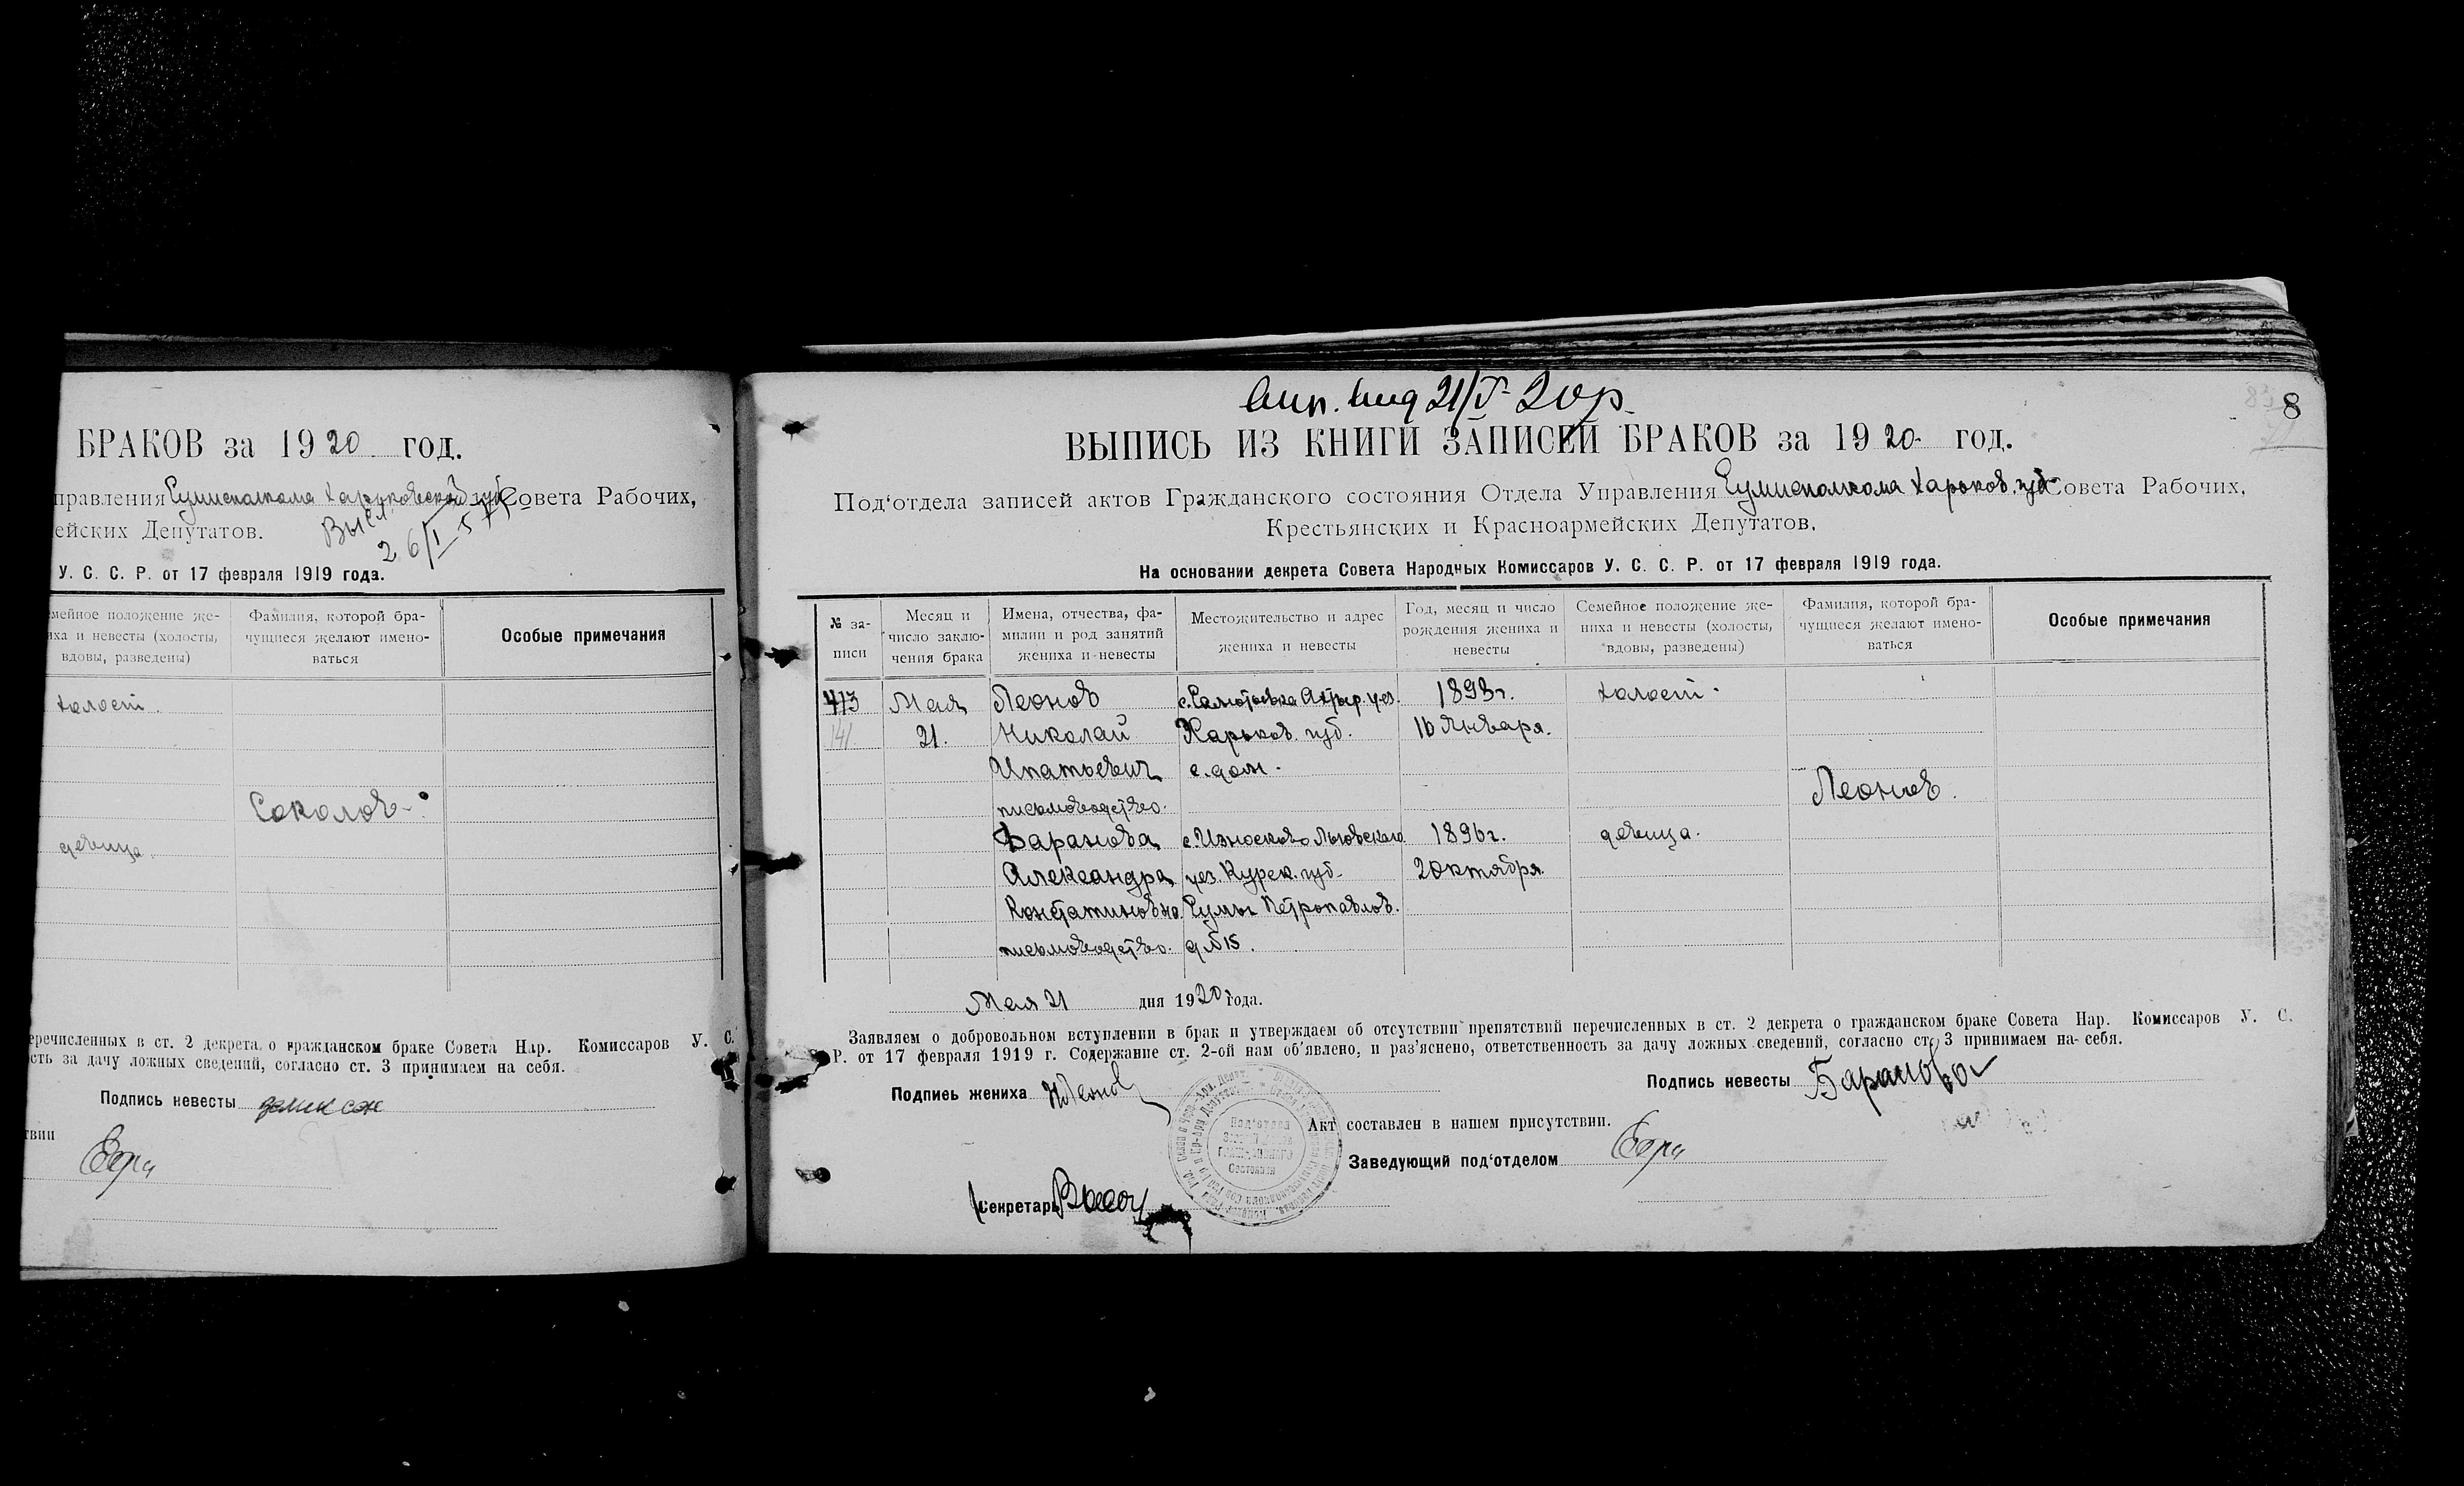 БРАКОВ за 1920 год.
правления Сумисполкома Харьковской губ Совета Рабочих,
ейских Депутатов.
Высл.
26/I-57
У. С. С. Р. от 17 февраля 1919 года.
мейное положение же-
иха и невесты (холосты,
вдовы, разведены)
Фамилия, которой бра-
чущиеся желают имено-
ваться
Особые примечания
холост.
Соколов
девица.
еречисленных в ст. 2 декрета о гражданском браке Совета Нар. Комиссаров У. С.
сть за дачу ложных сведений, согласно ст. 3 принимаем на себя.
Подпись невесты
твии
8
21/V-20р.
ВЫПИСЬ ИЗ КНИГИ ЗАПИСЕЙ БРАКОВ за 1920 год.
Под‘отдела записей актов Гражданского состояния Отдела Управления Сумисполкома Харьков. губ Совета Рабочих,
Крестьянских и Красноармейских Депутатов.
На основании декрета Совета Народных Комиссаров У. С. С. Р. от 17 февраля 1919 года.
№ за-
писи
Месяц и
число заклю-
чения брака
Имена, отчества, фа-
милии и род занятий
жениха и невесты
Местожительство и адрес
жениха и невесты
Год, месяц и число
рождения жениха и
невесты
Семейное положение же-
ниха и невесты (холосты,
вдовы, разведены)
Фамилия, которой бра-
чущиеся желают имено-
ваться
Особые примечания
413 Мая Леонов Ахтыр. уез. 1893г. холост.
141. 21. Николай Харьков. губ. 16 Января.
Ипатьевич с. дом.
письмоводство. Леонов.
Баранова с. Износково Льговского 1896г. девица.
Александра уез. Курск. губ. 2 Октября.
Константиновна Сумы Петропавлов.
письмоводство. д № 15.
Мая 21 дня 1920 года.
Заявляем о добровольном вступлении в брак и утверждаем об отсутствии препятствий перечисленных в ст. 2 декрета о гражданском браке Совета Нар. Комиссаров У. С.
Р. от 17 февраля 1919 г. Содержание ст. 2-ой нам об‘явлено, и раз‘яснено, ответственность за дачу ложных сведений, согласно ст. 3 принимаем на себя.
Подпись жениха НЛеонов
Подпись невесты Баранова
Акт составлен в нашем присутствии.
Заведующий под‘отделом
Секретарь
Под‘отдел
Состояния